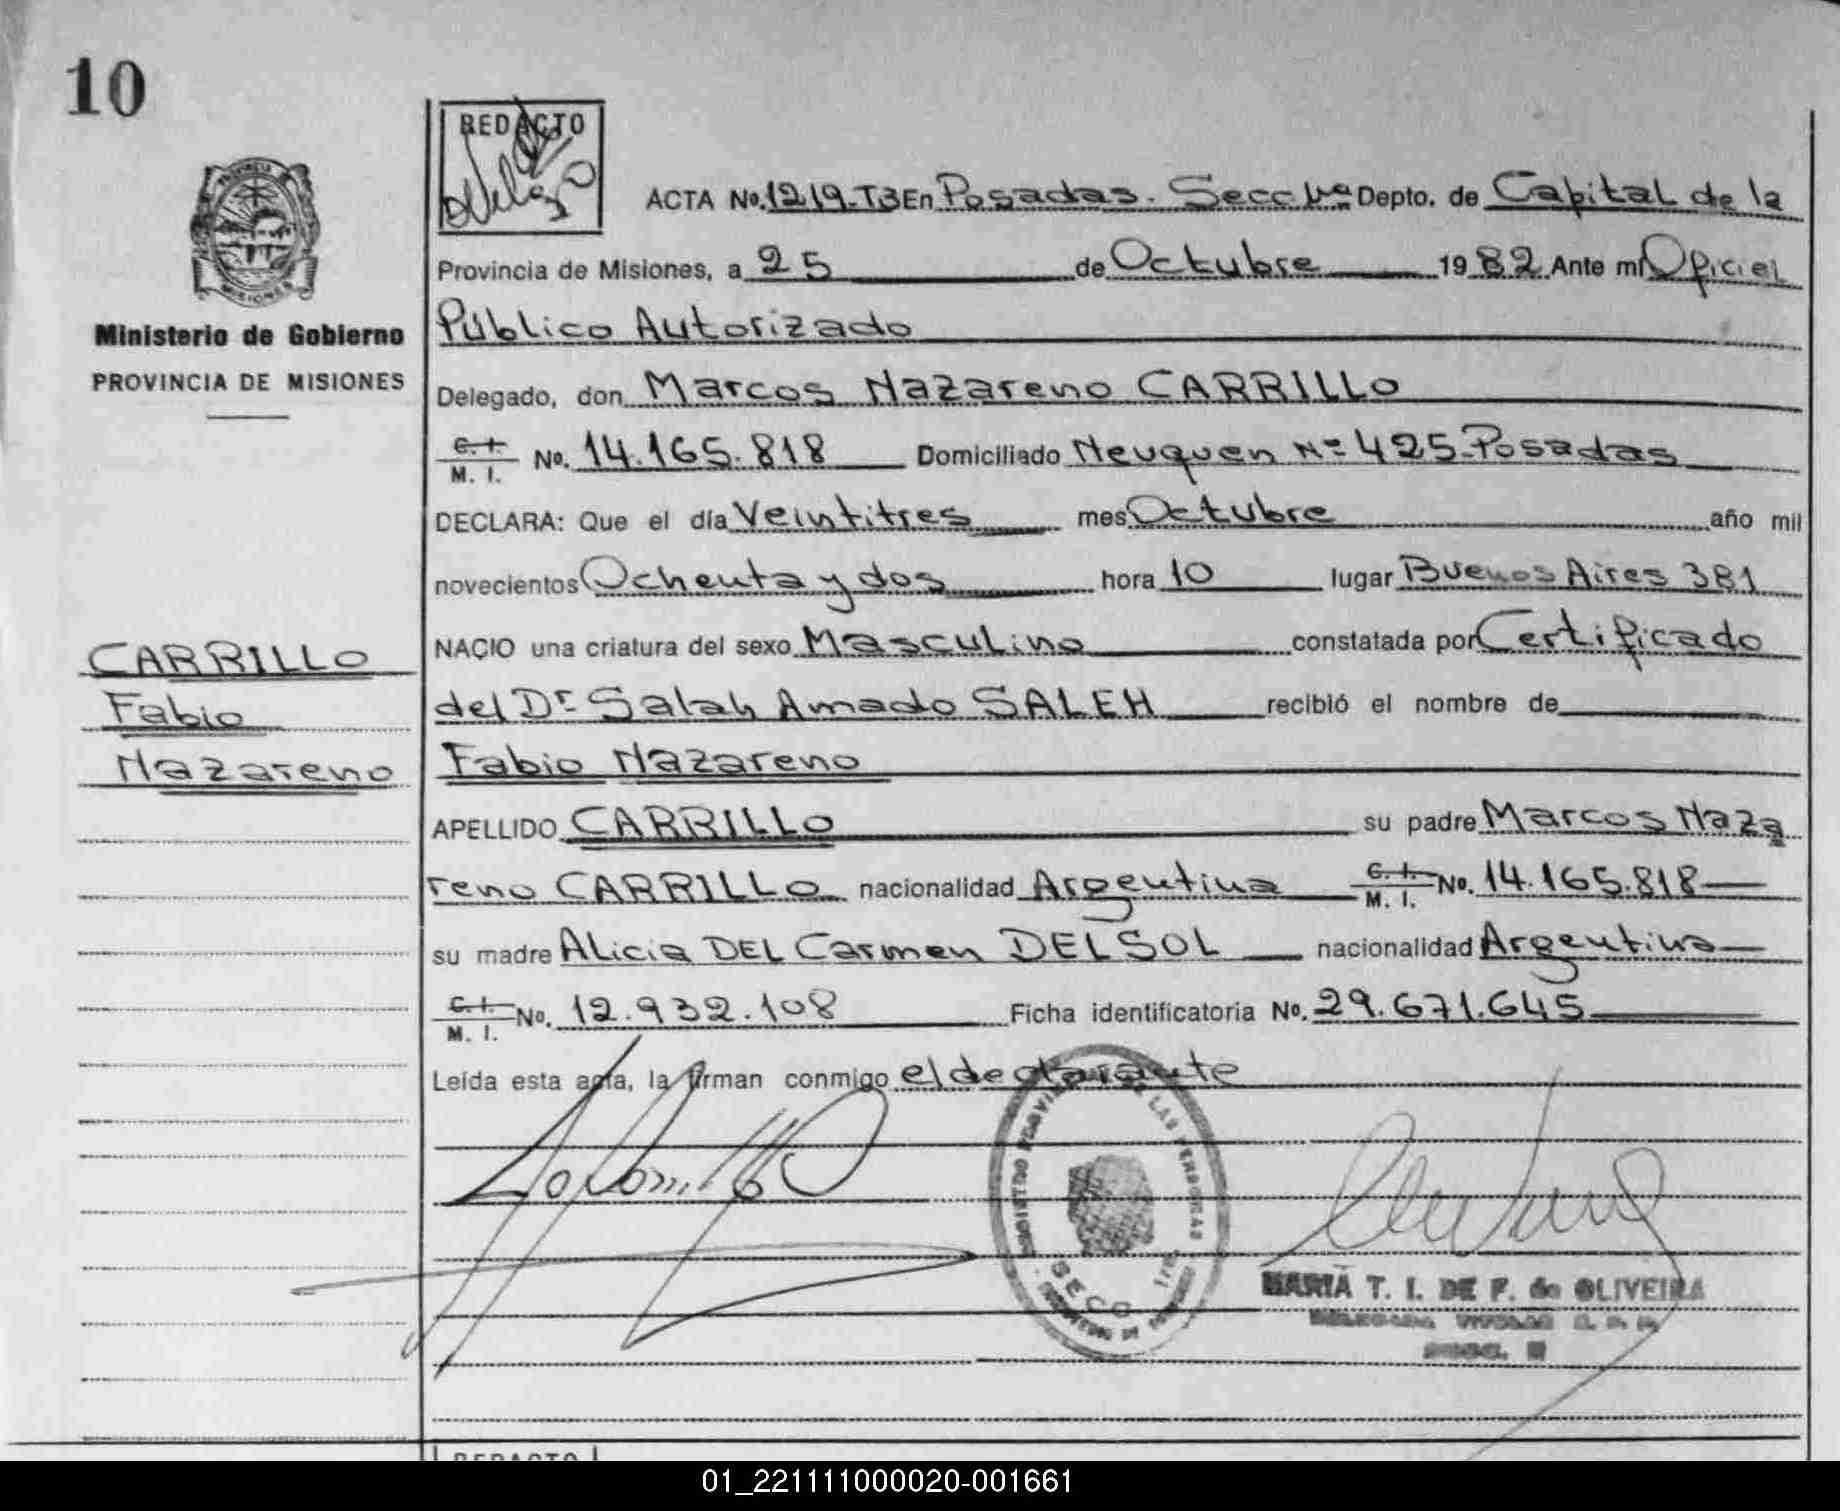 10
REDACTO
ACTA No. 1219-T3 En Posadas. Secc 1ra Depto. de Capital de la
Provincia de Misiones, a 25 de Octubre 1982 Ante mi Oficial
Público Autorizado
Ministerio de Gobierno
PROVINCIA DE MISIONES
Delegado, don Marcos Nazareno CARRILLO
C. I.
M. I. No. 14.165.818 Domiciliado Neuquen Nº 425-Posadas
DECLARA: Que el día Veintitres mes Octubre año mil
novecientos Ochenta y dos hora 10 lugar Buenos Aires 381
NACIO una criatura del sexo Masculino constatada por Certificado
del Dr Salah Amado SALEH recibió el nombre de
Fabio Nazareno
CARRILLO
Fabio
Nazareno
APELLIDO CARRILLO su padre Marcos Naza
reno CARRILLO nacionalidad Argentina C. I. M. I. No. 14.165.818
su madre Alicia DEL Carmen DELSOL nacionalidad Argentina
C. I.
M. I. No. 12.932.108 Ficha identificatoria No. 29.671.645
Leída esta acta, la firman conmigo el declarante
MARIA T. I. DE F. de OLIVEIRA
REDACTO
01_221111000020-001661